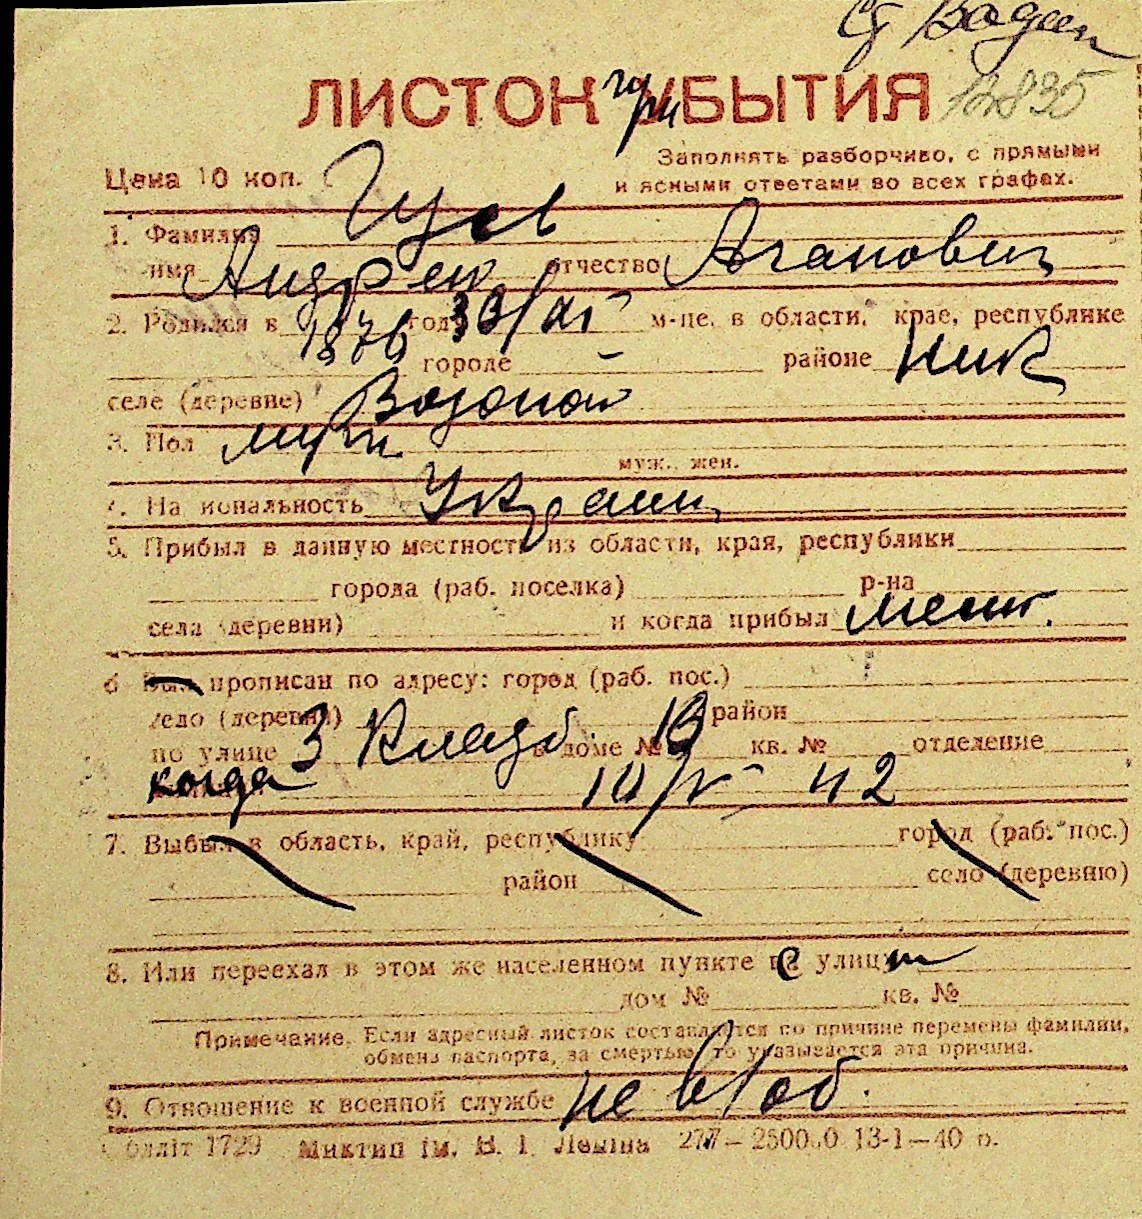 12835
ЛИСТОК УБЫТИЯ
Цена 10 коп.
Заполнять разборчиво, с прямыми
и ясными ответами во всех графах.
1. Фамилия Гусь
имя Андрей отчество Аганович
2. Родился в 1876 году 30/XI м-це, в области, крае, республике
городе — районе Ник
селе (деревне)
3. Пол муж.
муж., жен.
4. Национальность Украин,
5. Прибыл в данную местность из области, края, республики
города (раб. поселка) р-на
села (деревни) и когда прибыл мест.
6 Был прописан по адресу: город (раб. пос.)
село (деревня) район
по улице 3 Кладб в доме № 19 кв. № отделение
когда 10/V — 42
7. Выбыл в область, край, республику город (раб. пос.)
район село (деревню)
8. Или переехал в этом же населенном пункте улицу
дом № кв. №
Примечание. Если адресный листок составляется по причине перемены фамилии,
обмена паспорта, за смертью, то указывается эта причина.
9. Отношение к военной службе не в/об.
Обліт 1729 Миктип ім. В. І. Леніна 277—25000 13-1—40 р.